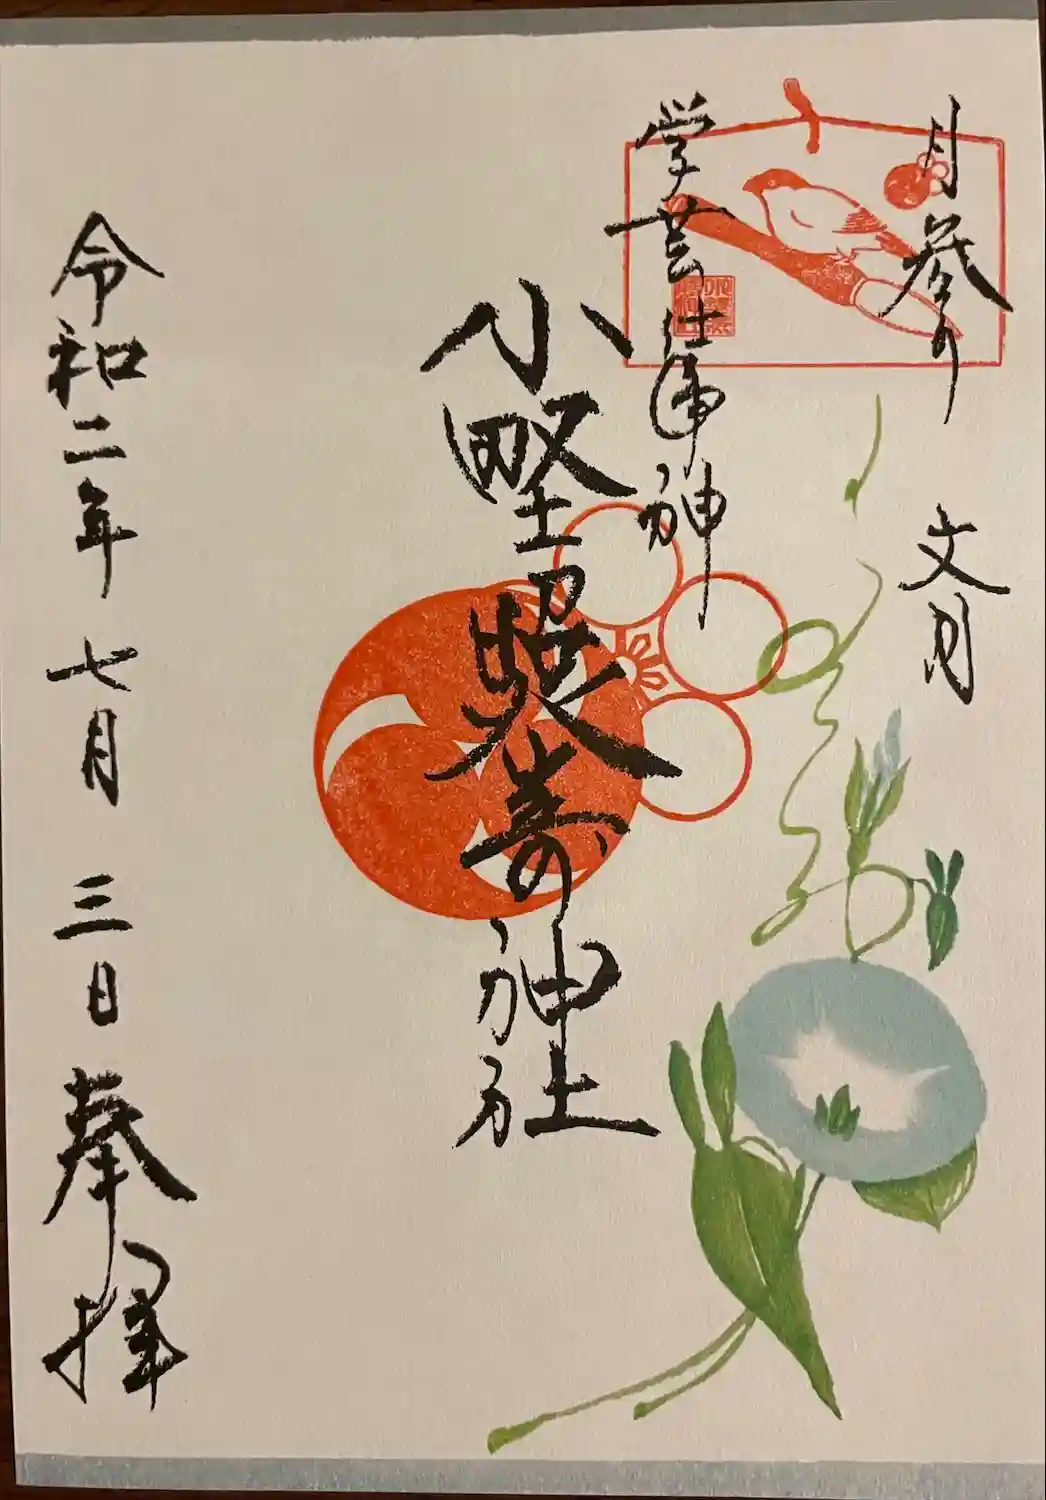 月参り 文月
学芸仕事神
小野照崎神社
令和二年 七月 三日 奉拝